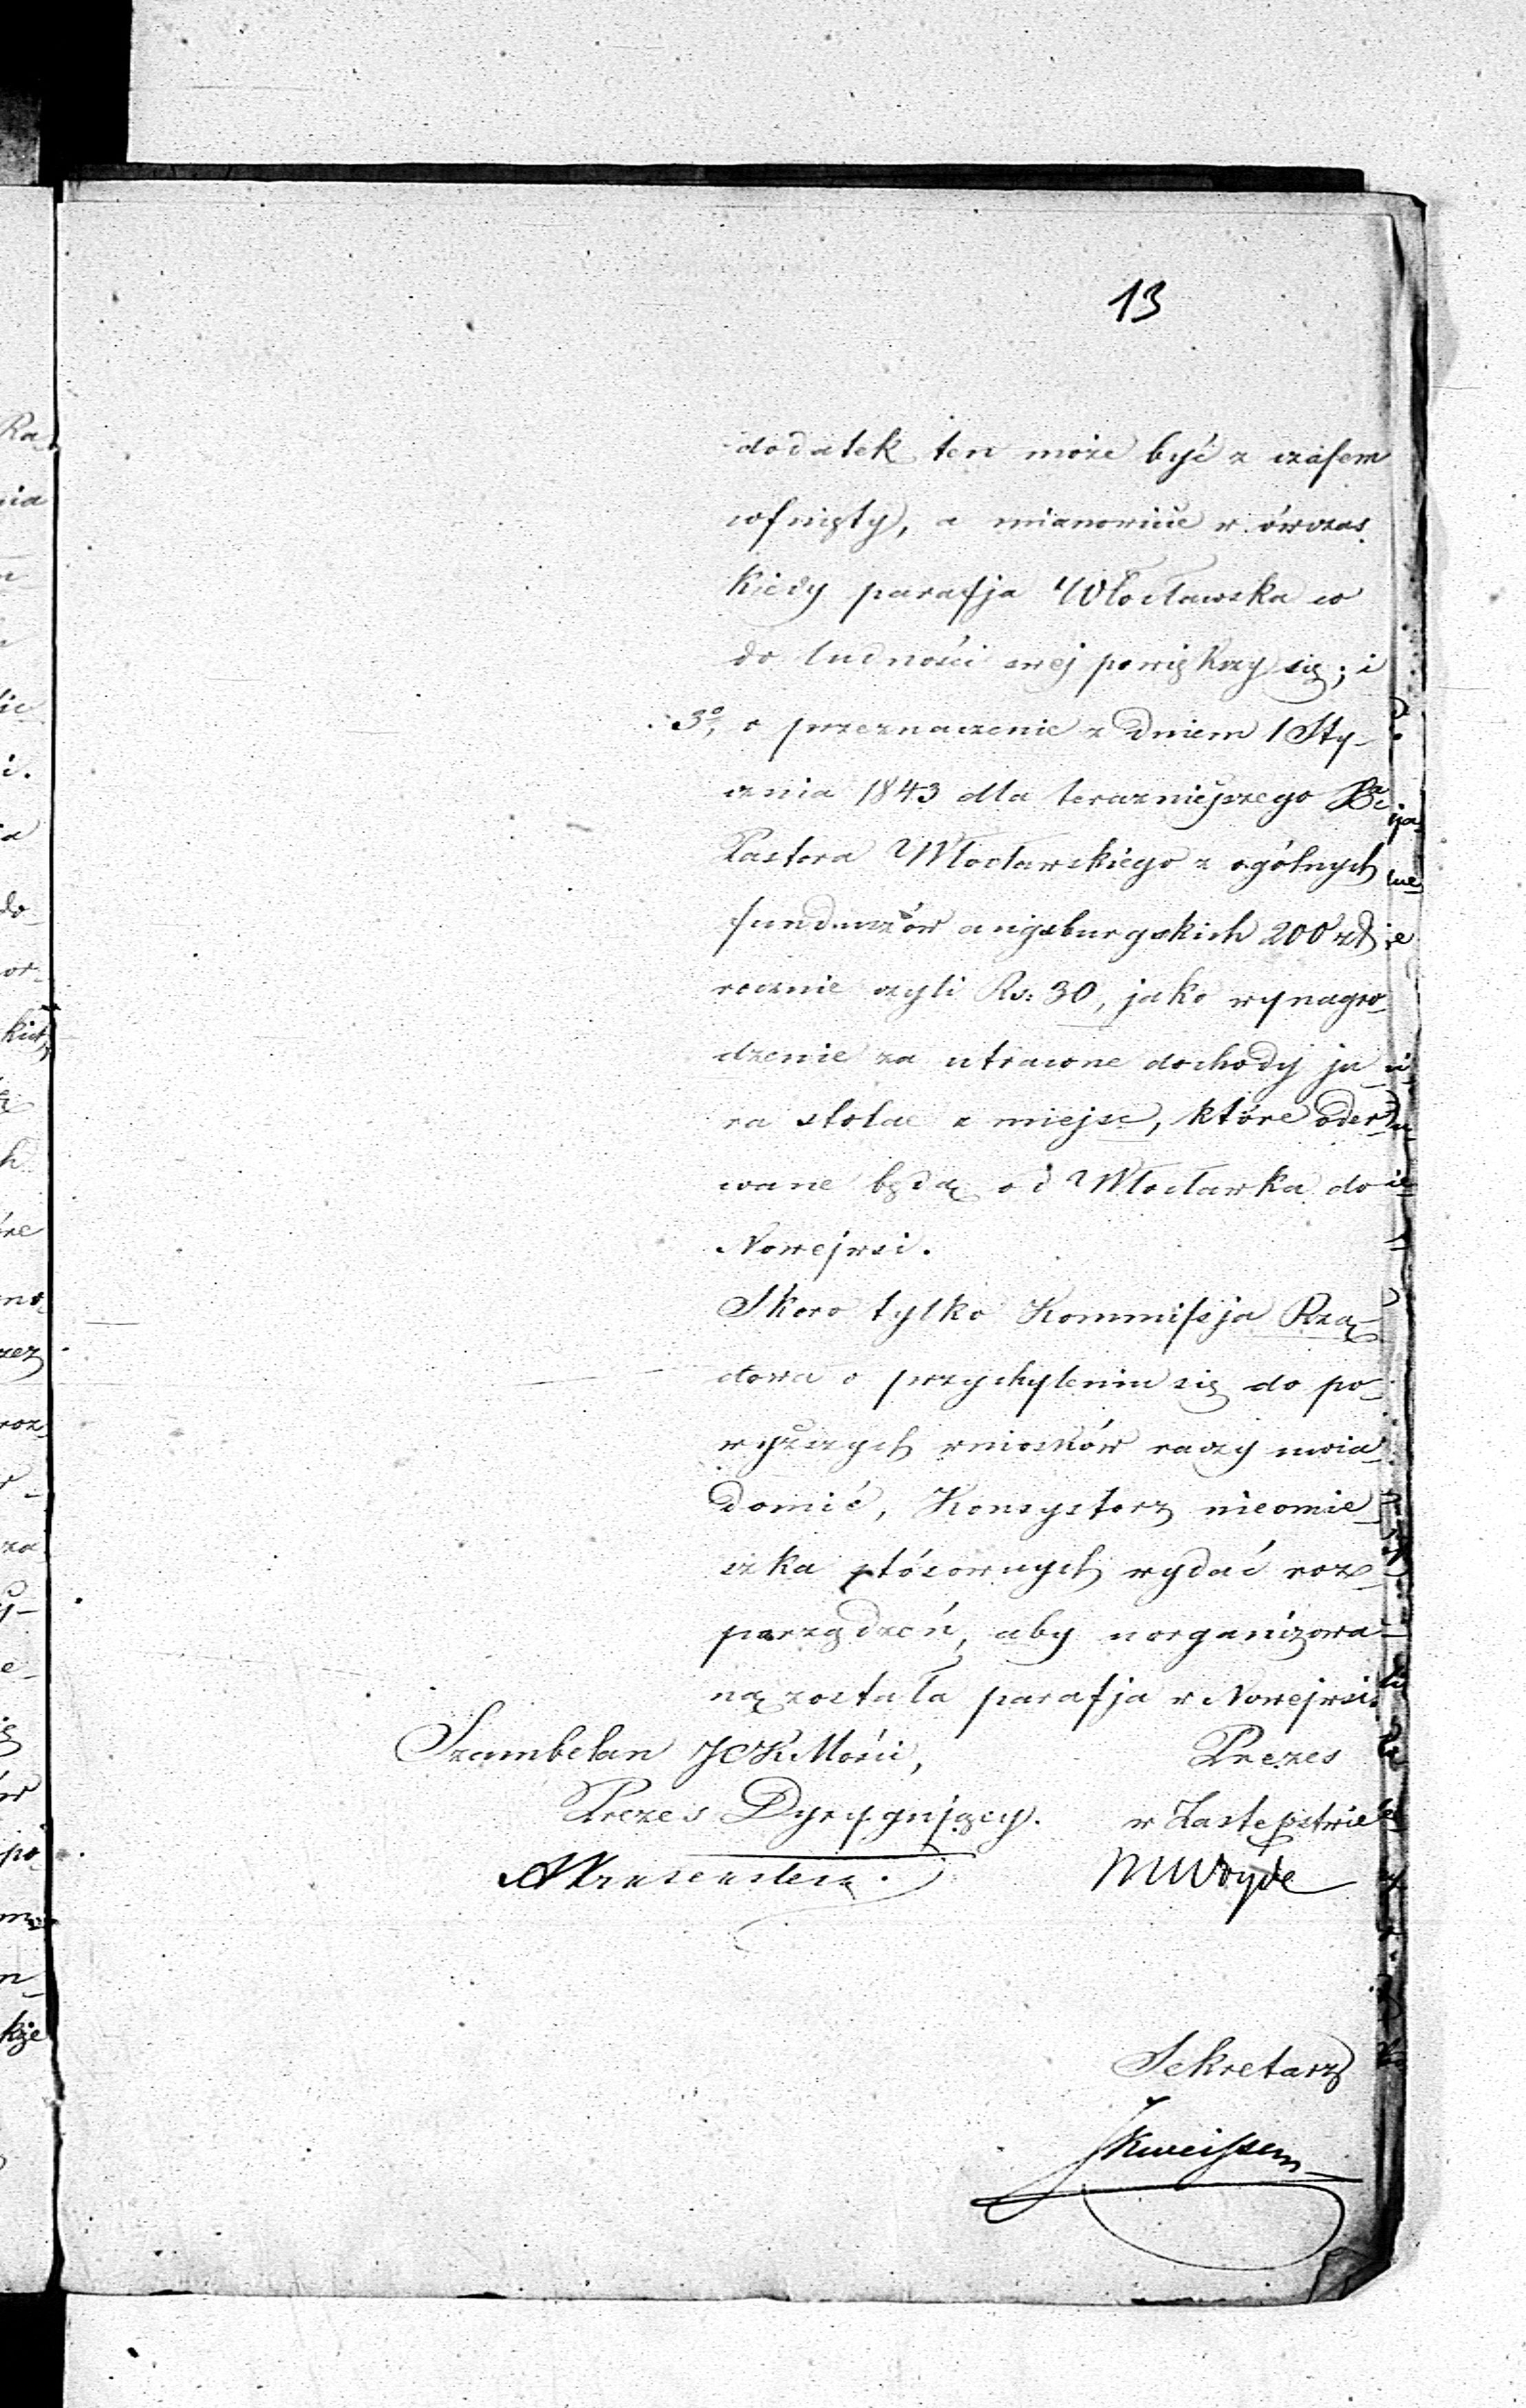 13
dodatek ten może być z czasem
cofnięty, a mianowicie w ówczas
kiedy parafja Włocławska co
do ludności swej powiększy się; i
3o, o przeznaczenie z dniem 1 Sty-
cznia 1843 dla terazniejszego
Pastora Włocławskiego z ogólnych
funduszów augsburgskich 200 zł
rocznie czyli Rs: 30, jako wynagro-
dzenie za utracone dochody ju-
ra stolae z miejsc, które oder-
wane będą od Włocławka do
Nowejwsi.
Skoro tylko Kommissja Rzą-
dowa o przychyleniu się do po-
wyższych wniosków raczy uwia-
domić, Konsystorz nieomie-
szka stósownych wydać roz-
porządzeń, aby uorganizowa-
ną została parafja w Nowejwsi.
Szambelan JCKMości, Prezes
Prezes Dyrygujący. w Zastępstwie
MWoyde
Sekretarz